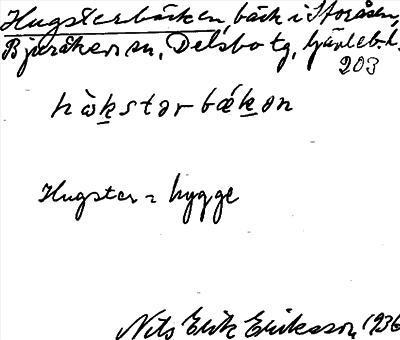 Hugsterbäcken, bäck i Storåsen,
Bjuråkers sn, Delsbo tg, Gävleb. l.
203
hὰkstərbǽkən
Hugster = hygge
Nils Erik Eriksson, 1936